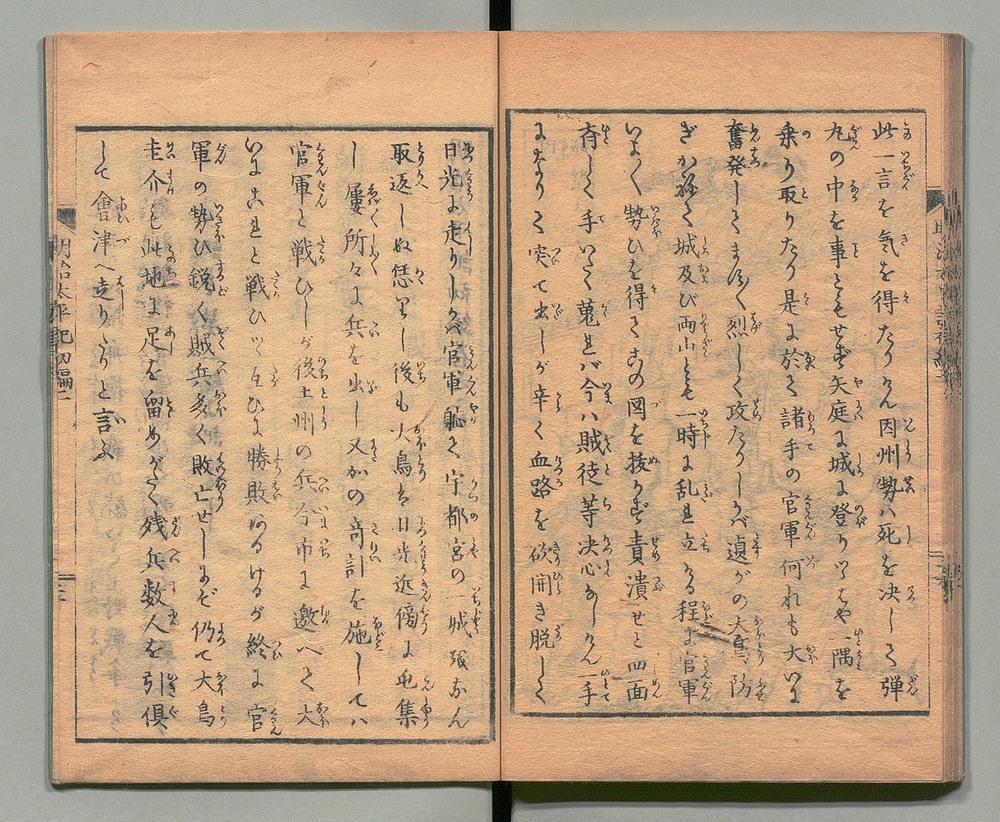 此一言を気を得たりけん因州勢ハ死を决しく弾
丸の中を事ともせず矢庭に城に登りつゝはや一隅を
乗り取りたり是に於て諸手の官軍何れも大いに
奮発しますます烈しく攻たりしかバ遉がの大鳥防
ぎかねて城及び両山とも一時に乱れ立る程に官軍
いよいよ勢ひを得てこの図を抜かず責潰せと四面
斉しく手いたく蒐れバ今ハ賊徒等决心なしけん一手
になりて突て出しが辛く血路を斫開き脱して
日光に走りしかバ官軍恥て宇都宮の一城なん
取返しぬ恁りし後も大鳥ハ日光近傍に屯集
し屢所々に兵を出し又かの奇計を施してハ
官軍と戦ひしが後土州の兵今市に邀へて大
いにこれと戦ひつ互ひに勝敗ありけるが終に官
軍の勢ひ鋭く賊兵多く敗亡せしにぞ仍て大鳥
圭介も此地に足を留めがたく残兵数人を引倶
して會津へ走りたりと言ふ
明治太平記初編二